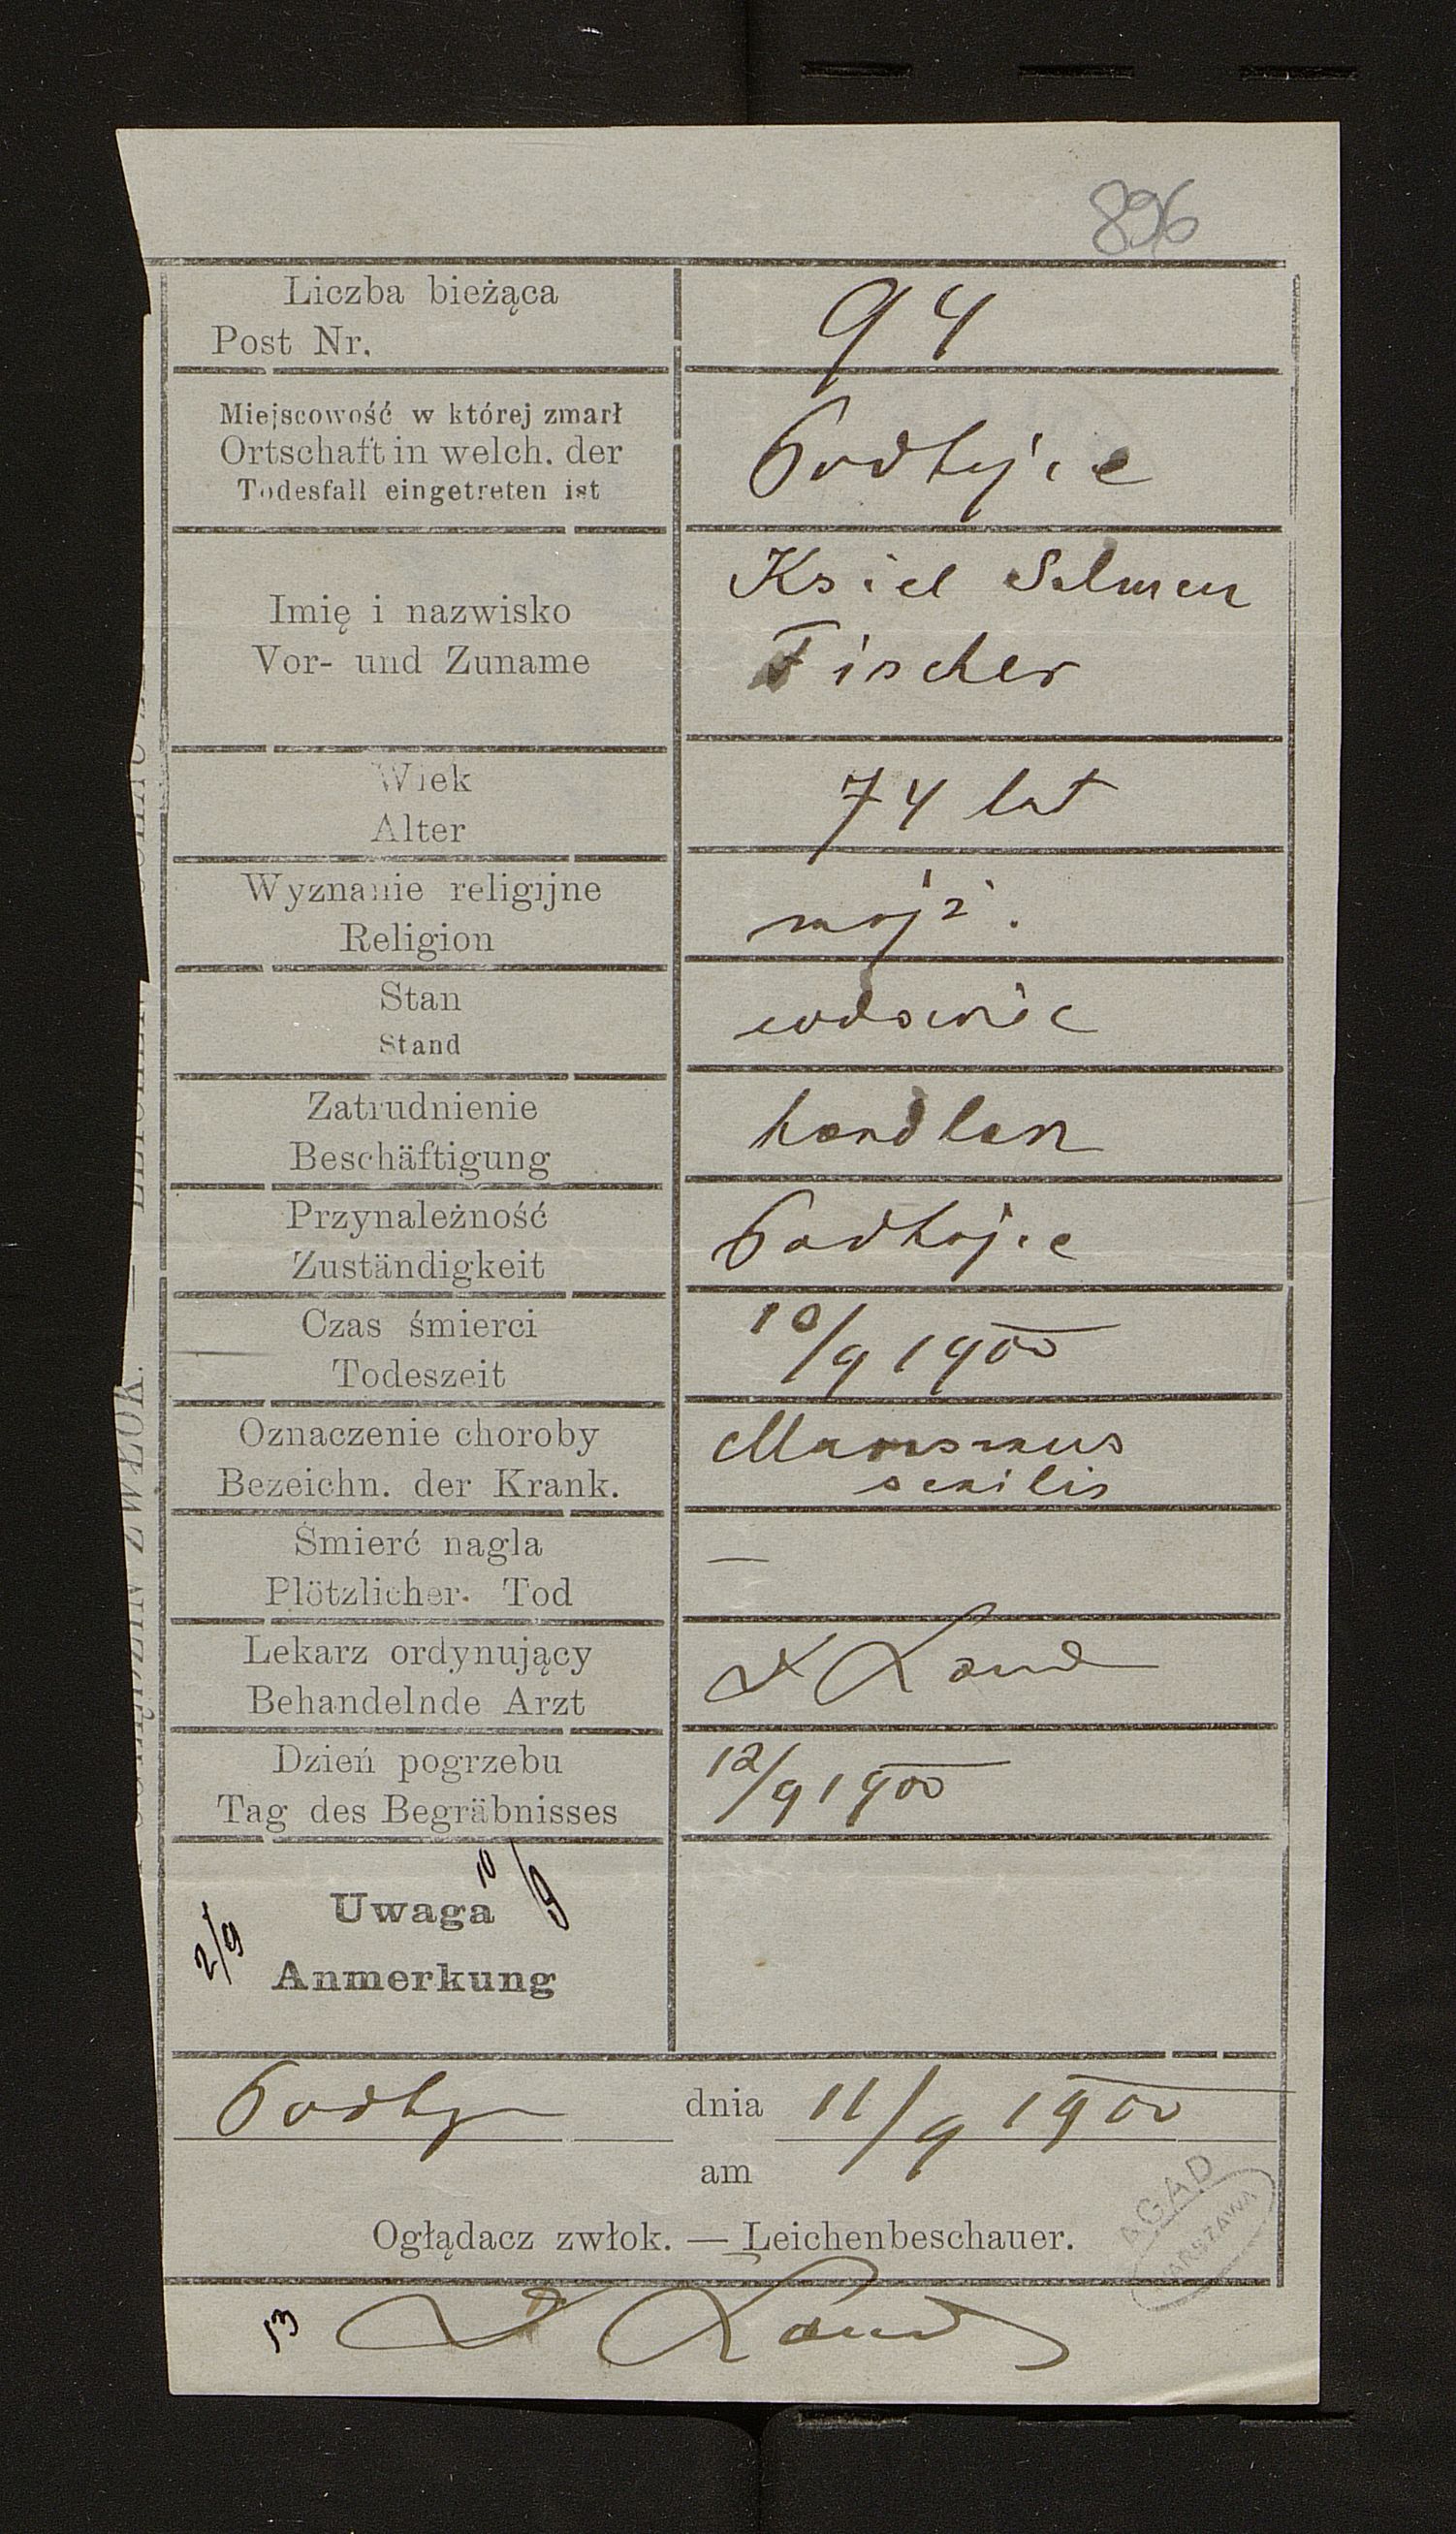 896
Liczba bieżąca
Post Nr.
94
Miejscowość w której zmarł
Ortschaft in welch. der
Todesfall eingetreten ist
Podhajce
Imię i nazwisko
Vor- und Zuname
Ksiel Salmen
Fischer
Wiek
Alter
74 lat
Wyznanie religijne
Religion
mojż.
Stan
Stand
wdowiec
Zatrudnienie
Beschäftigung
handlarz
Przynależność
Zuständigkeit
Podhajce
Czas śmierci
Todeszeit
10/9 1900
Oznaczenie choroby
Bezeichn. der Krank.
Marasmus
senilis
Śmierć nagla
Plötzlicher. Tod
—
Lekarz ordynujący
Behandelnde Arzt
Dr Land
Dzień pogrzebu
Tag des Begräbnisses
12/9 1900
10/9
2/9
Uwaga
Anmerkung
dnia 11/9 1900
am
Oglądacz zwłok. — Leichenbeschauer.
AGAD
WARSZAWA
13
Dr Land
ZWŁOK.